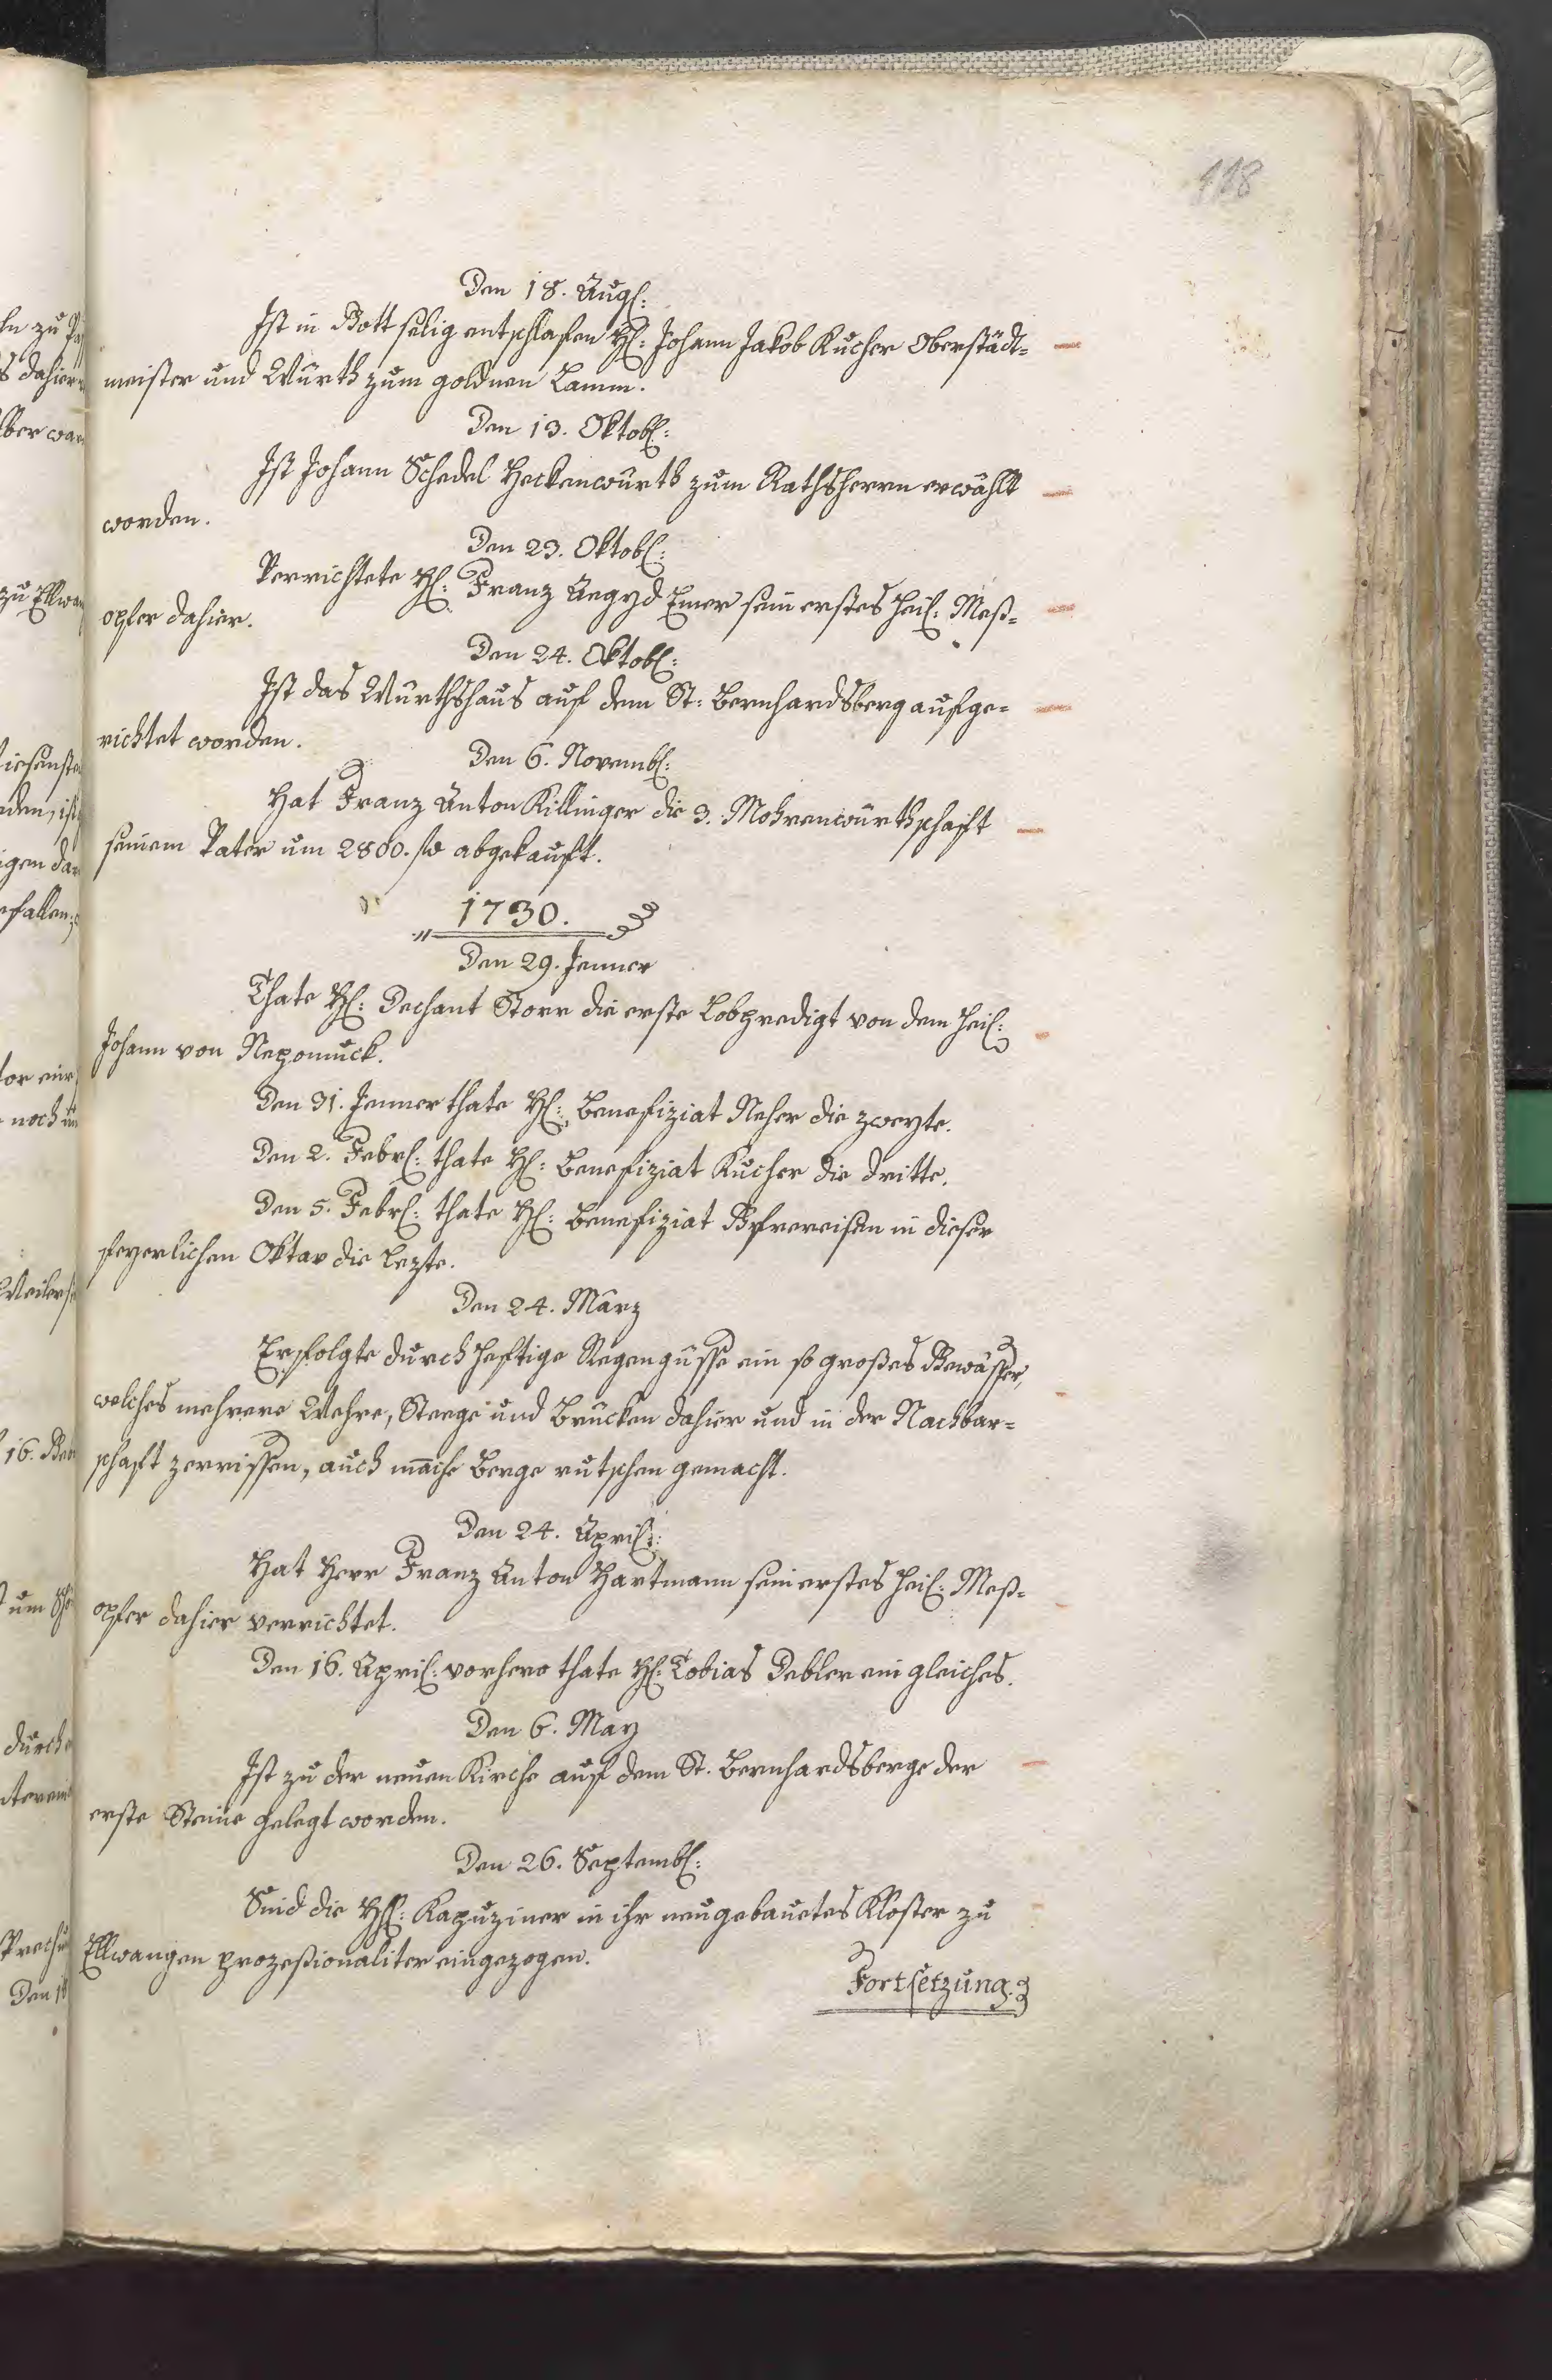 118
Den 18. Augl:
Ist in Gott selig entschlafen Hl: Johann Jakob Kucher Oberstädt=
meister und Würth zum goldnen Lamm.
Den 13. Oktobl:
Ist Johann Schedel Heckenwürth zum Rathsherrn erwählt
worden.
Den 23. Oktobl:
Verrichtete Hl: Franz Aegyd Emer sein erstes heil: Meß=
opfer dahier.
Den 24. Oktobl:
Ist das Würthshaus auf dem St: Bernhardsberg aufge=
richtet worden.
Den 6. Novembl:
Hat Franz Anton Killinger die 3. Mohrenwürthschaft
seinem Vater um 2800. fl abgekauft.
1730.
Den 29. Jenner
Thate Hl: Dechant Storr die erste Lobpredigt von dem heil:
Johann von Nepomuck.
Den 31. Jenner thate Hl: Benefiziat Neher die zweyte.
Den 2. Febrl: thate Hl: Benefiziat Kucher die dritte.
Den 5. Febrl: thate Hl: Benefiziat in dieser
feyerlichen Oktav die lezte.
Den 24. März
Erfolgte durch heftige Regengüsse ein so großes Gewässer,
welches mehrere Wehre, Steege und Brücken dahier und in der Nachbar=
schaft zerrissen, auch manche Berge rutschen gemacht.
Den 24. April:
Hat Herr Franz Anton Hartmann sein erstes heil: Meß=
opfer dahier verrichtet.
Den 16. April: vorhero thate Hl: Tobias Debler ein gleiches.
Den 6. May
Ist zu der neuen Kirche auf dem St. Bernhardsberge der
erste Steine gelegt worden.
Den 26. Septembl:
Sind die Hl: Kapuziner in ihr neugebauetes Kloster zu
Ellwangen prozeßionaliter eingezogen.
Fortsetzung.